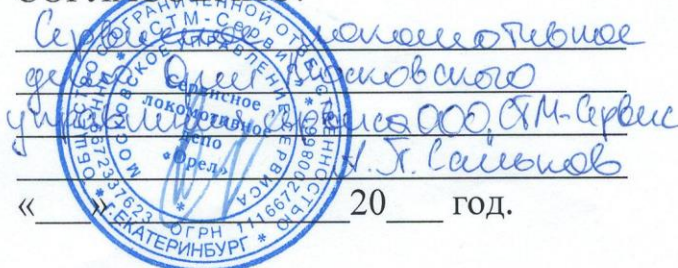 Сервисное локомотивное
депо Орел Московского
управления сервиса ООО "СТМ-Сервис
Н.П. Саньков
«___»___20___ год.
ОБЩЕСТВО С ОГРАНИЧЕННОЙ ОТВЕТСТВЕННОСТЬЮ
«СТМ-СЕРВИС»
МОСКОВСКОЕ УПРАВЛЕНИЕ СЕРВИСА
Сервисное
локомотивное
депо
«Орел»
ОГРН 11166720086
г. ЕКАТЕРИНБУРГ